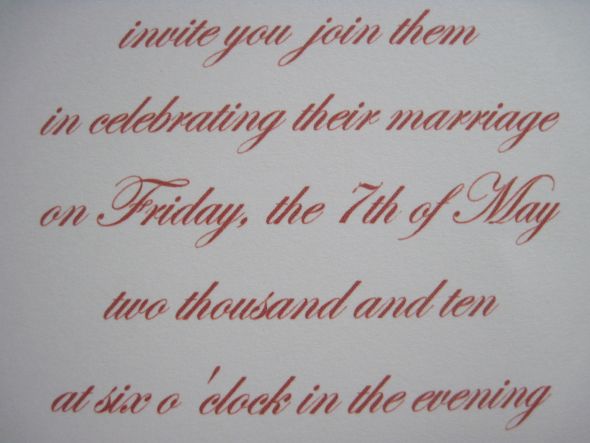 invite you join them
in celebrating their marriage
on Friday, the 7th of May
two thousand and ten
at six o 'clock in the evening